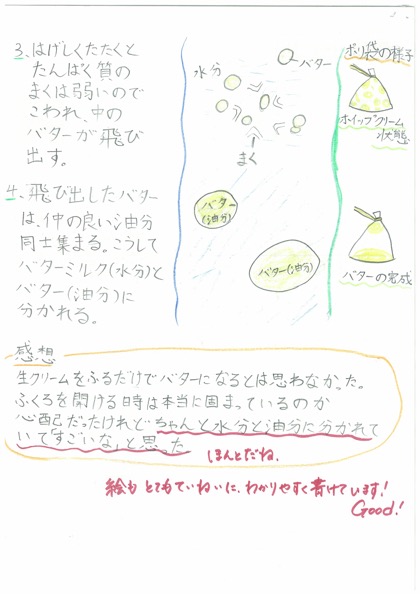 3、はげしくたたくと
たんぱく質の
まくは弱いので
こわれ、中の
バターが飛び
出す。
4、飛び出したバター
は、仲の良い油分
同士集まる。こうして
バターミルク(水分)と
バター(油分)に
分かれる。
水分
バター
まく
バター
(油分)
バター(油分)
ポリ袋の様子
ホイップクリーム
状態
バターの完成
感想
生クリームをふるだけでバターになるとは思わなかった。
ふくろを開ける時は本当に固まっているのか
心配だったけれど、ちゃんと水分と油分に分かれて
いて「すごいな」と思った
ほんとだね。
絵も とてもていねいに、わかりやすく書けています!
Good!